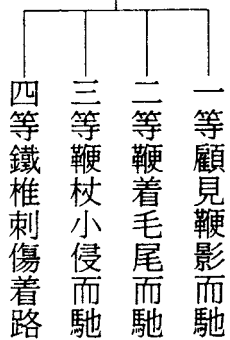 一等顧見鞭影而馳
二等鞭着毛尾而馳
三等鞭杖小侵而馳
四等鐵椎刺傷着路